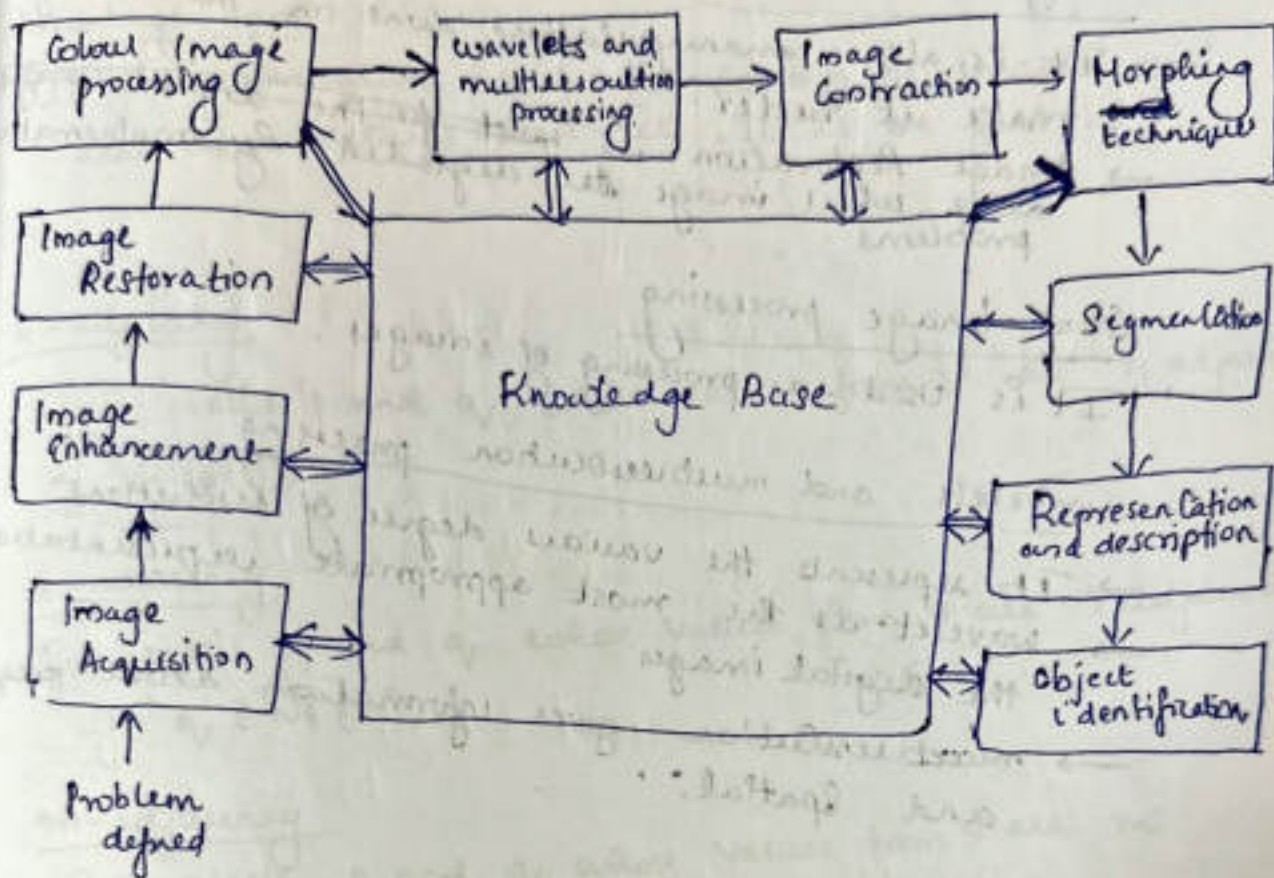 Colour Image
processing
wavelets and
multiresoultion
processing
Image
Contraction
Morphing
techniques
Image
Restoration
Segmentation
Knowledge Base
Image
Enhancement
Representation
and description
Image
Acquisition
Object
identification
Problem
defined